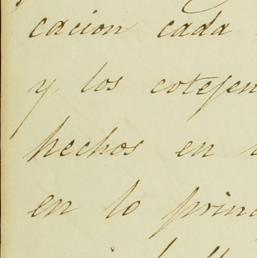 cacion cada
y los cotejen
hechos en
en lo prin